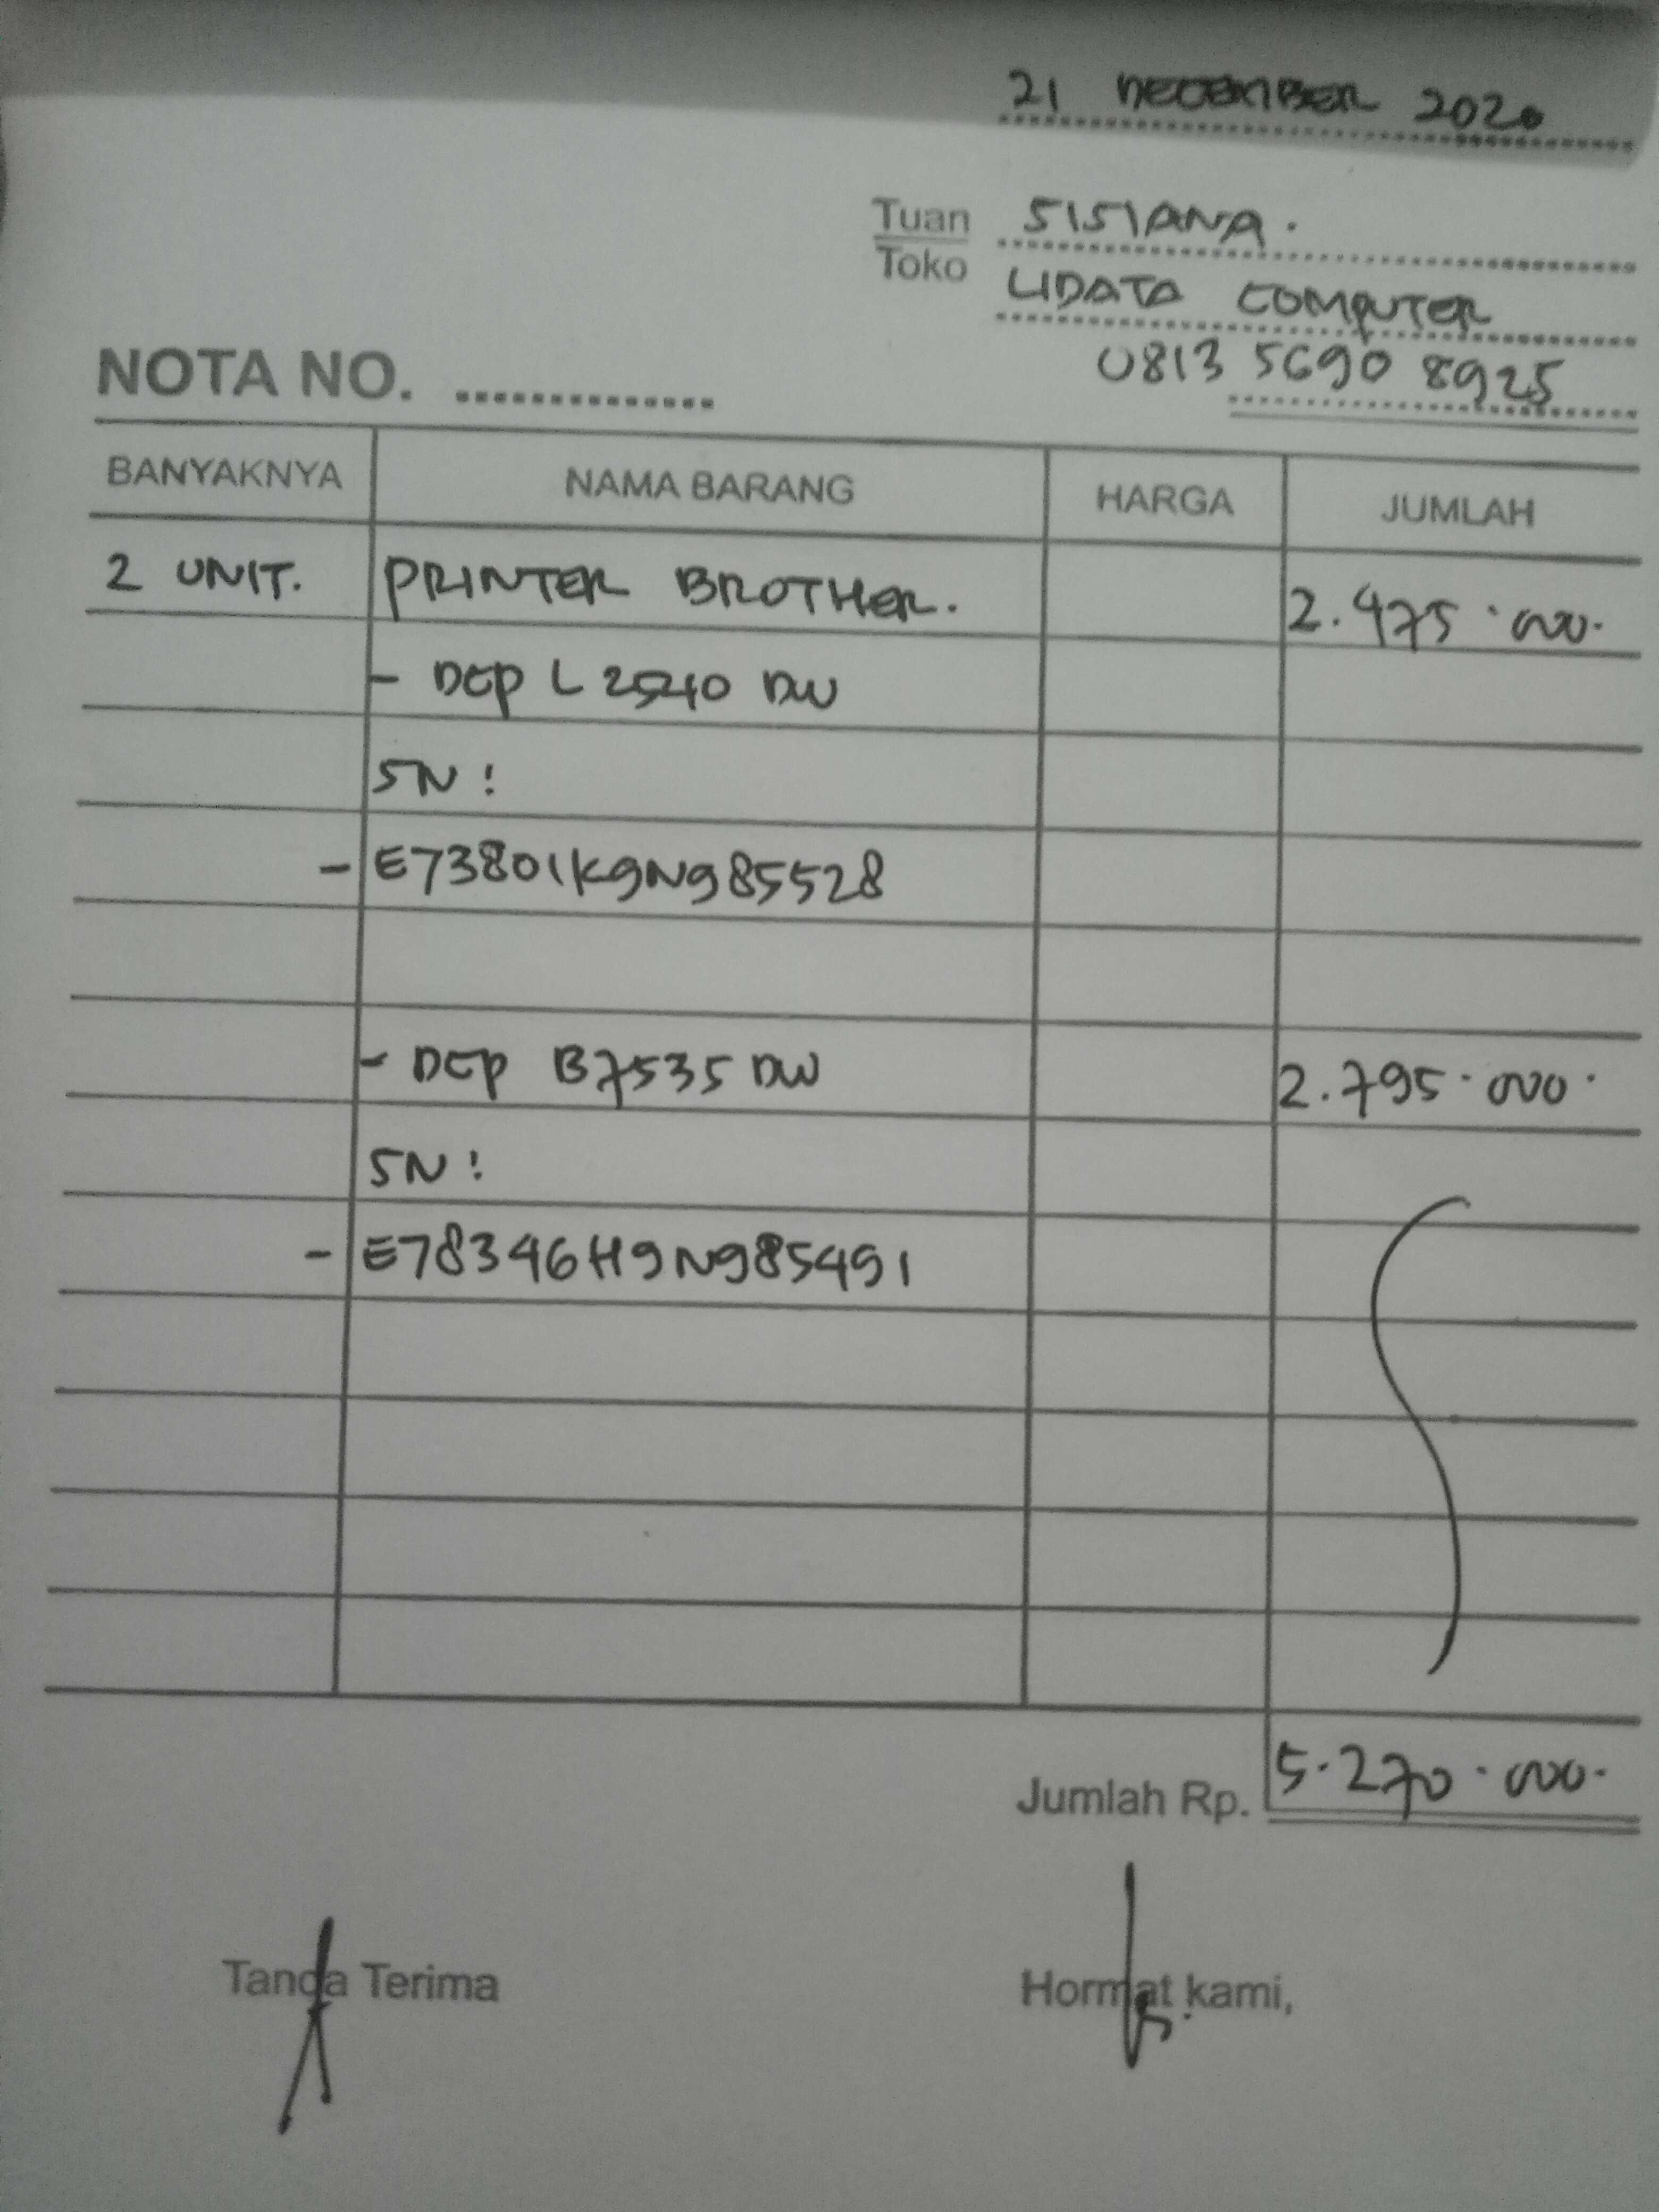 21 DECEMBER 2020
Tuan SISIANA.
Toko LIDATA COMPUTER
0813 5690 8925
NOTA NO. ...............
BANYAKNYA NAMA BARANG HARGA JUMLAH
2 UNIT. PRINTER BROTHER. 2.475.000.
- DCP L 2540 DW
SN :
- E73801K9N985528
- DCP B7535 DW 2.795.000.
SN :
- E78346H9N985491
Jumlah Rp. 5.270.000.
Tanda Terima Hormat kami,